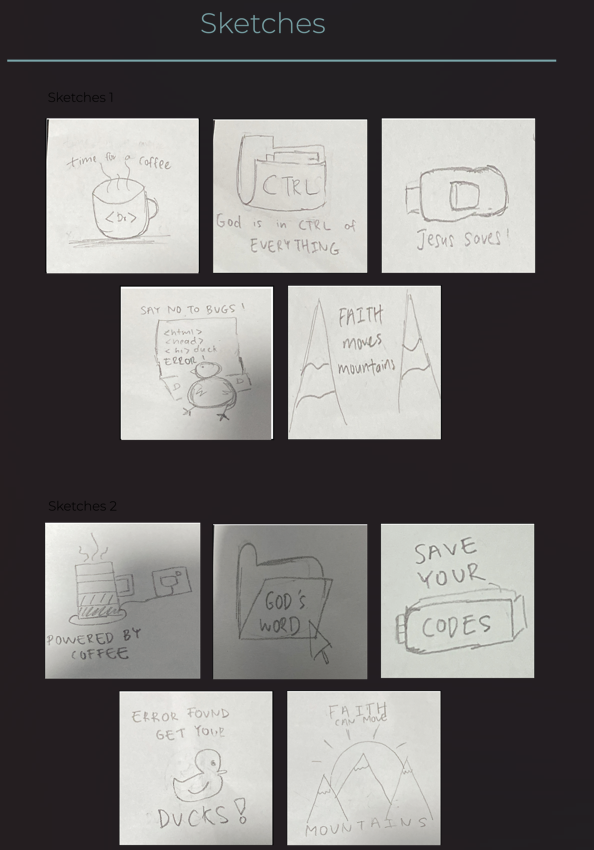 Sketches
Sketches 1
time for a coffee
<Di>
CTRL
God is in CTRL of
EVERYTHING
Jesus saves!
SAY NO TO BUGS!
<html>
<head>
<h1> duck
ERROR!
FAITH
moves
mountains
Sketches 2
POWERED BY
COFFEE
GOD'S
WORD
SAVE
YOUR
CODES
ERROR FOUND
GET YOUR
DUCKS!
FAITH
CAN MOVE
MOUNTAINS